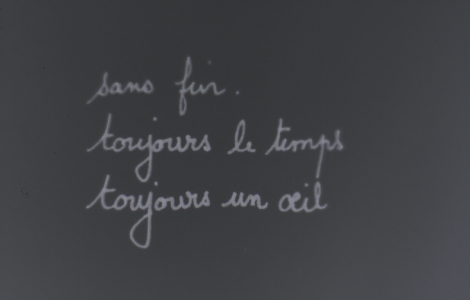 sans fin.
toujours le temps
toujours un œil